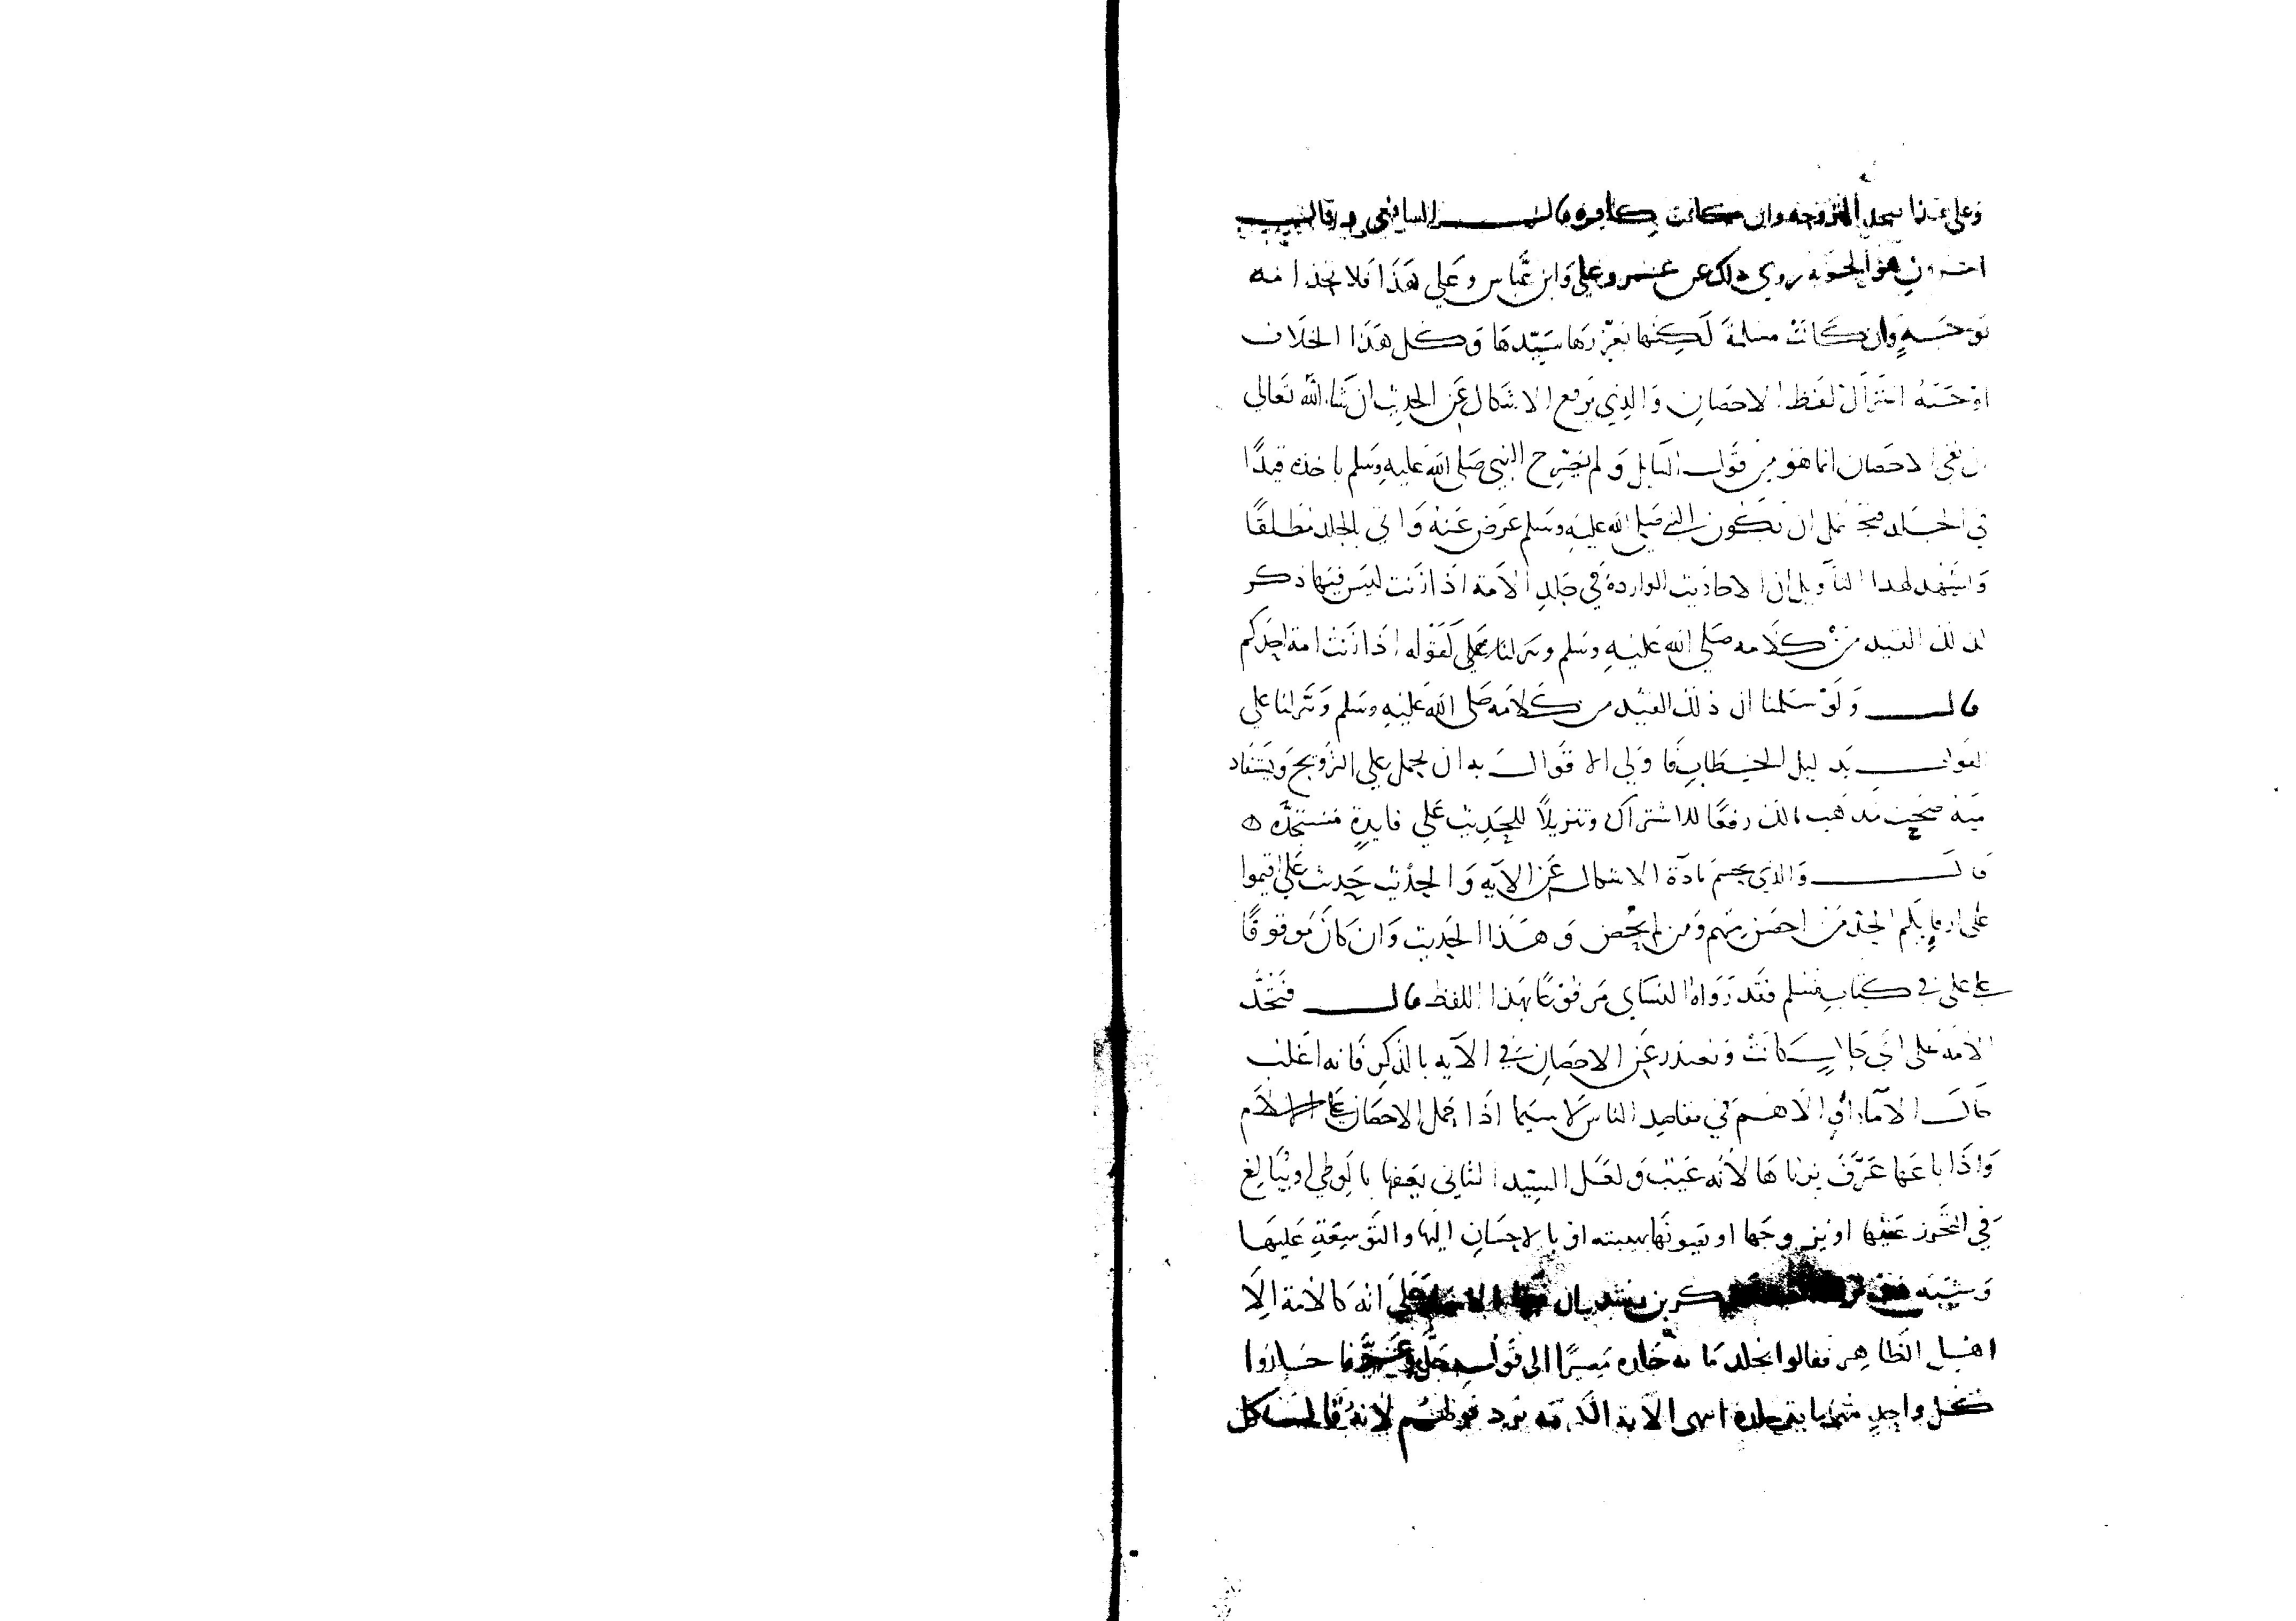 وعلى هذا تحد المزوجة وان كانت كافره قالـــ الشافعي وقالـــ
اخرون هو الحرية روي ذلك عن عمر وعلي وابن عباس وعلى هذا فلا تحد امة
وان كانت مسلمة لكنها يعزرها سيدها وكل هذا الخلاف
اوجبه اشتراك لفظ الاحصان والذي يرفع الاشكال عن الحديث ان شاء الله تعالى
ان نفي الاحصان انما هو من قول السايل ولم يصرح النبي صلى الله عليه وسلم باخذه قيدا
في الجلد فيحتمل ان يكون النبي صلى الله عليه وسلم عرض عنه واتى بالجلد مطلقا
ويشهد لهدا التأويل ان الاحاديث الواردة في جلد الامة اذا زنت ليس فيها ذكر
لذلك القيد من كلامه صلى الله عليه وسلم كقوله اذا زنت امة احدكم
قالـــ ولو سلمنا ان ذلك القيد من كلامه صلى الله عليه وسلم وتنزلنا على
القول بدليل الخطاب فاولى الاقوال به ان يحمل على التزويج ويستفاد
منه صحيح مذهب مالك رفعا للاشتراك وتنزيلا للحديث على فايدة مستجده ه
قالـــ والذي يحسم مادة الاشكال عن الايه والحديث حديث علي اقيموا
على ارقايكم الحد من احصن منهم ومن لم يحصن وهذا الحديث وان كان موقوفا
على علي في كتاب مسلم فقد رواه النساي مرفوعا بهذا اللفظ قالـــ فتحد
الامة على اي حال كانت ونعتذر عن الاحصان في الآيه بالذكر فانه اغلب
حالـ الآماء او الاهم في مقاصد الناس لا سيما اذا حمل الاحصان على الاسلام
واذا باعها عرف بزناها لأنه عيب ولعل السيد الثاني يعفها بالوطي او يبالغ
في التحرز عنها او يزوجها او يصونها بهيبته او بالاحسان اليها والتوسعة عليها
على انه كالامة الا
اهل الظاهر فقالوا يجلد مايه جلده مصيرا الى قولـه جل وعز فاجلدوا
كل واحد منهما مايه جلدة انتهى الاية الكريمه ترد قولهم لانه قالـ كل